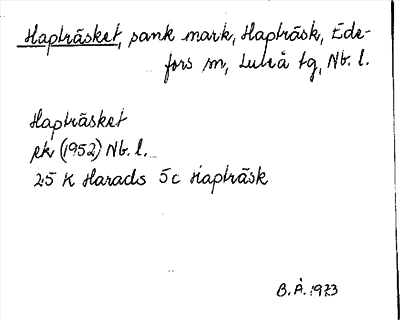 Hapträsket, sank mark, Hapträsk, Ede-
fors sn, Luleå tg, Nb. l.
Hapträsket
ek (1952) Nb. l.
25 K Harads 5c Hapträsk
B.Å. 1973